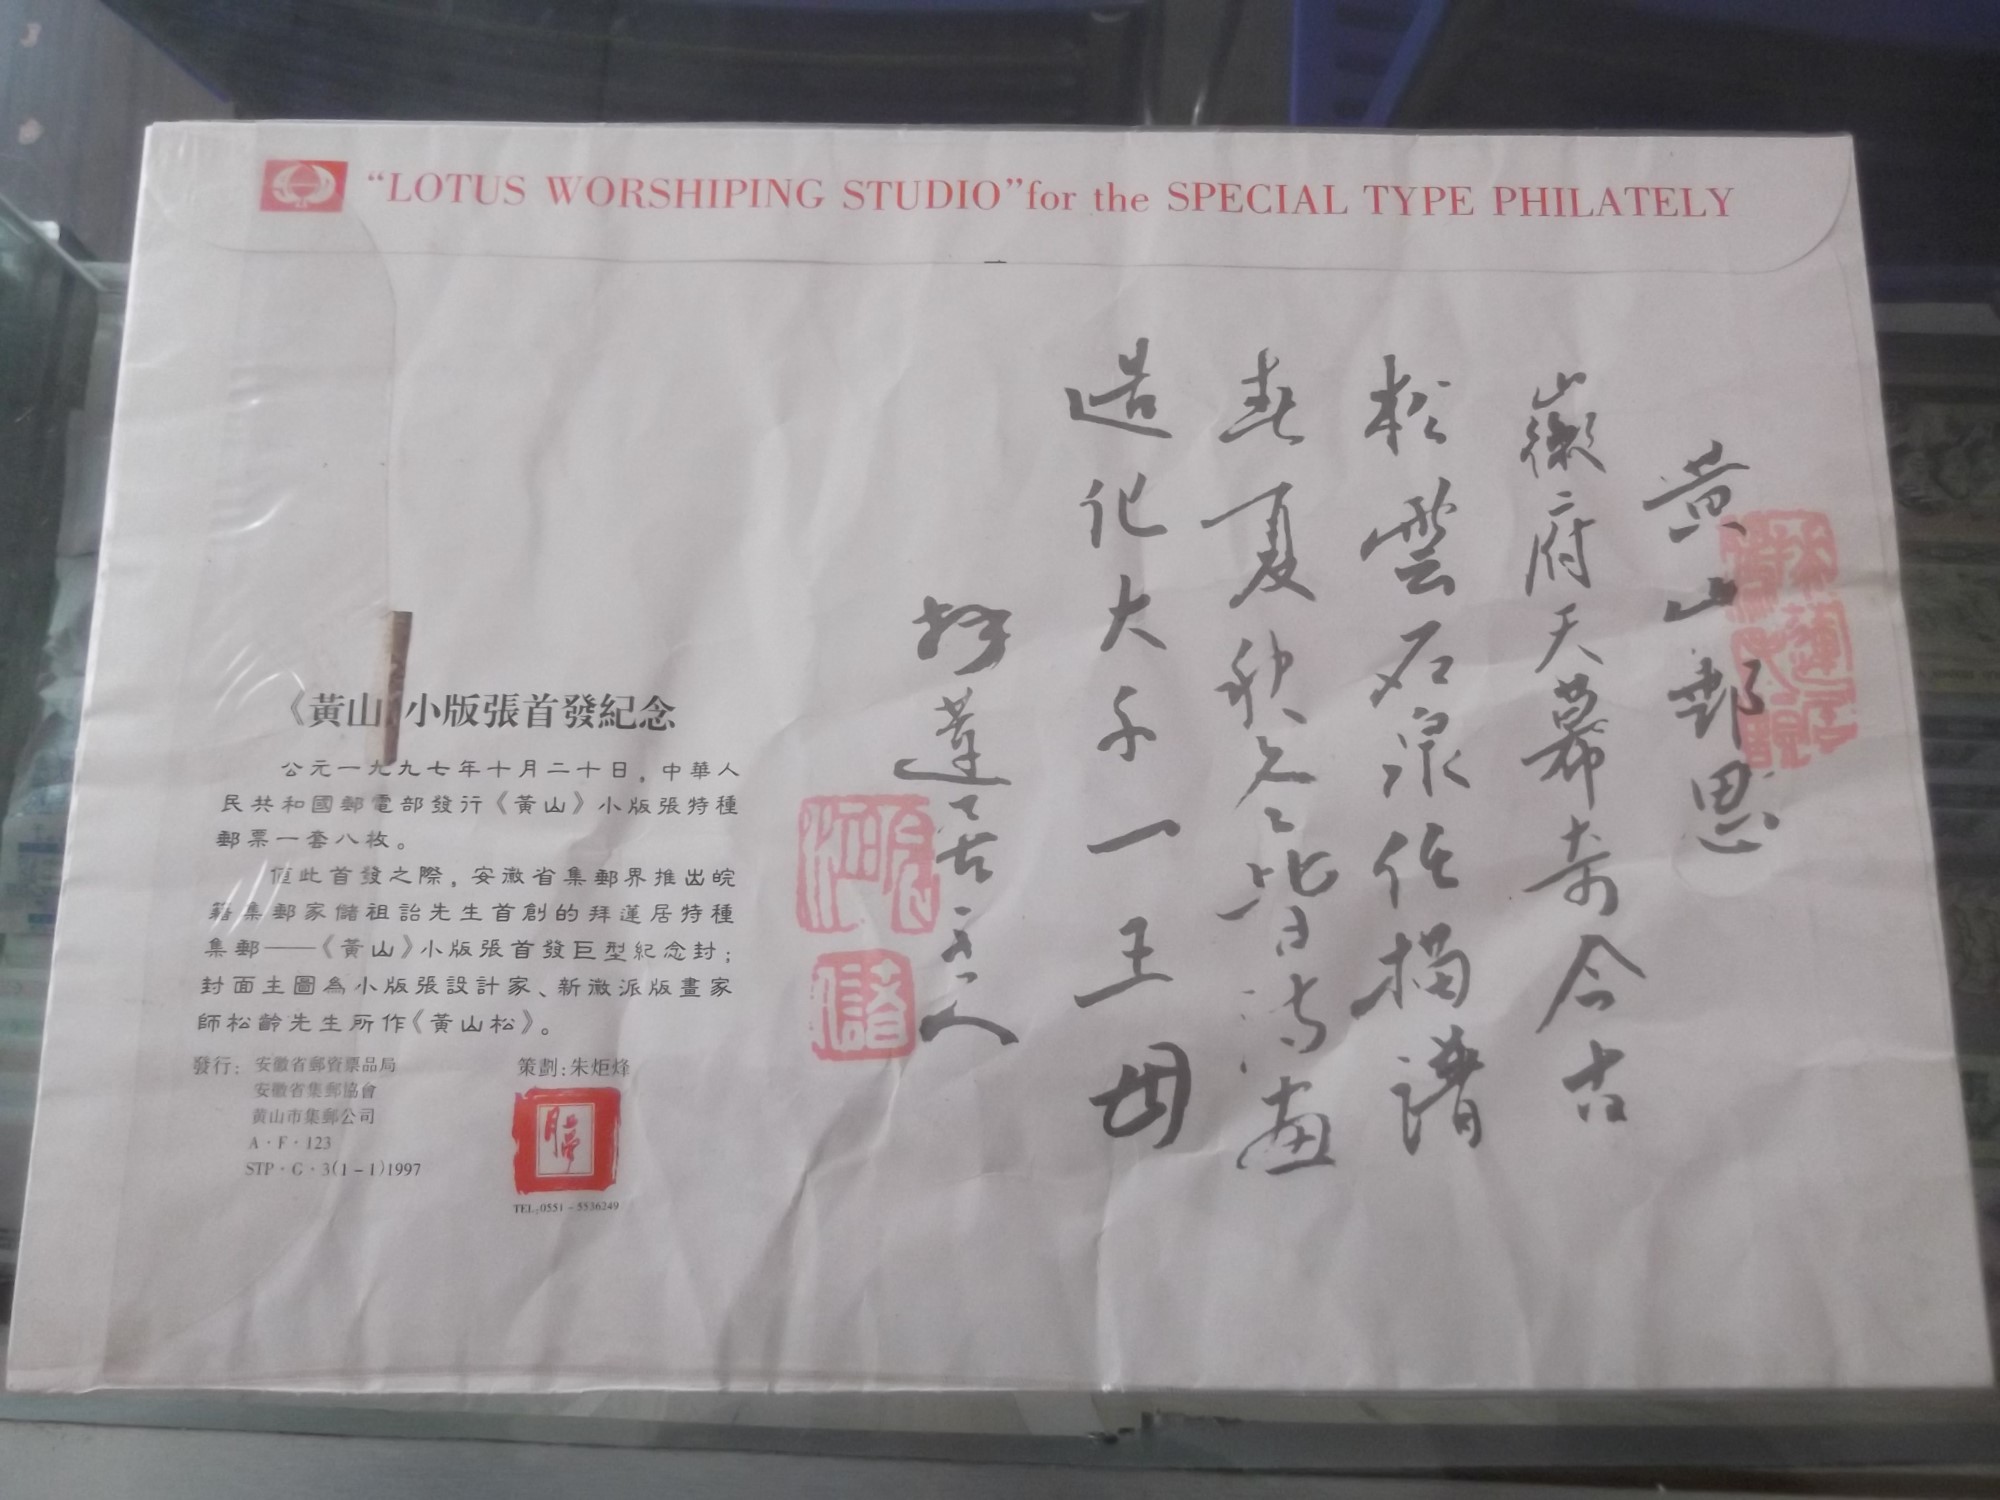 “LOTUS WORSHIPING STUDIO”for the SPECIAL TYPE PHILATELY
黃山郵思
徽府天幕奇今古
松雲石泉任描譜
春夏秋冬皆詩畫
造化大千一王母
拜蓮居主人
《黃山》小版張首發紀念
公元一九九七年十月二十日，中華人
民共和國郵電部發行《黃山》小版張特種
郵票一套八枚。
值此首發之際，安徽省集郵界推出皖
籍集郵家儲祖詒先生首創的拜蓮居特種
集郵——《黃山》小版張首發巨型紀念封；
封面主圖為小版張設計家、新徽派版畫家
師松齡先生所作《黃山松》。
發行：安徽省郵資票品局
安徽省集郵協會
黃山市集郵公司
A·F·123
STP·G·3(1-1)1997
策劃:朱炬烽
TEL:0551-5536249
儲